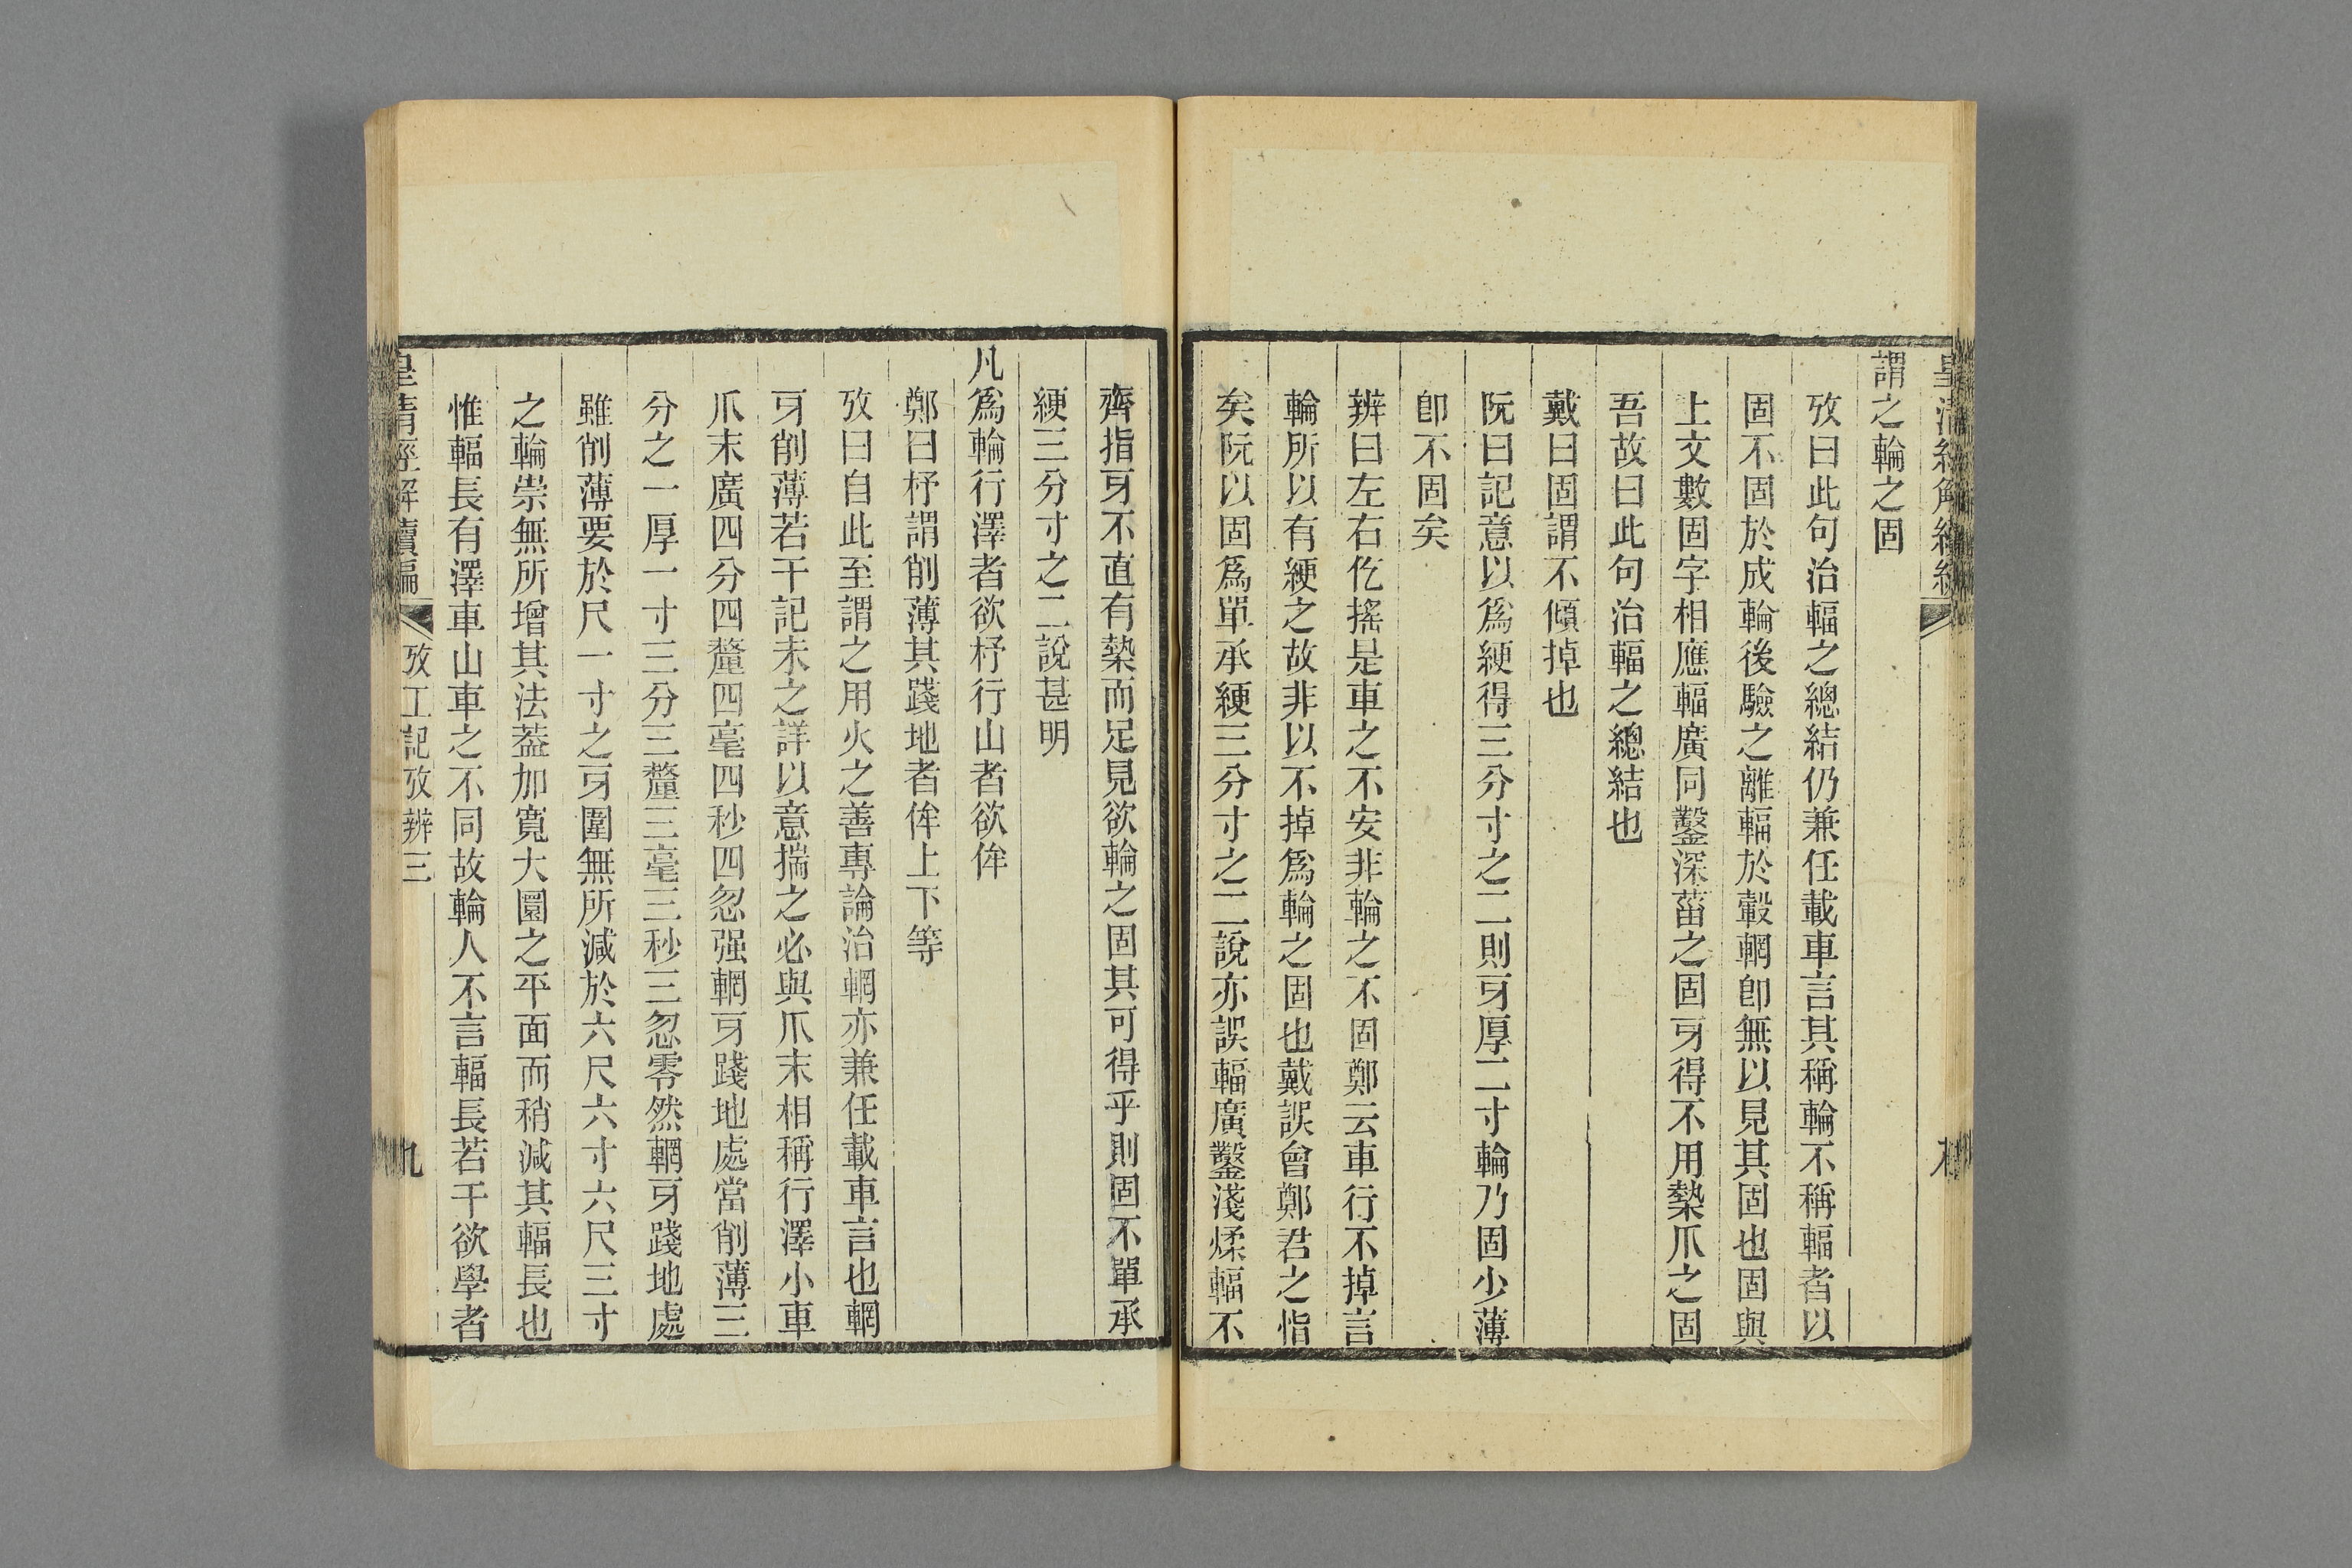 謂之輪之固
攷曰此句治輻之總結仍兼任載車言其稱輪不稱輻者以
固不固於成輪後驗之離輻於轂輞卽無以見其固也固與
上文數固字相應輻廣同鑿深菑之固牙得不用槷爪之固
吾故曰此句治輻之總結也
戴曰固謂不傾掉也
阮曰記意以爲綆得三分寸之二則牙厚二寸輪乃固少薄
卽不固矣
辨曰左右仡搖是車之不安非輪之不固鄭云車行不掉言
輪所以有綆之故非以不掉爲輪之固也戴誤會鄭君之恉
矣阮以固爲單承綆三分寸之二說亦誤輻廣鑿淺煣輻不
齊指牙不直有槷而足見欲輪之固其可得乎則固不單承
綆三分寸之二說甚明
凡爲輪行澤者欲杼行山者欲侔
鄭曰杼謂削薄其踐地者侔上下等
攷曰自此至謂之用火之善專論治輞亦兼任載車言也輞
牙削薄若干記未之詳以意揣之必與爪末相稱行澤小車
爪末廣四分四釐四毫四秒四忽强輞牙踐地處當削薄三
分之一厚一寸三分三釐三毫三秒三忽零然輞牙踐地處
雖削薄要於尺一寸之牙圍無所減於六尺六寸六尺三寸
之輪崇無所增其法葢加寬大圜之平面而稍減其輻長也
惟輻長有澤車山車之不同故輪人不言輻長若干欲學者
皇清經解續編
攷工記攷辨三
九